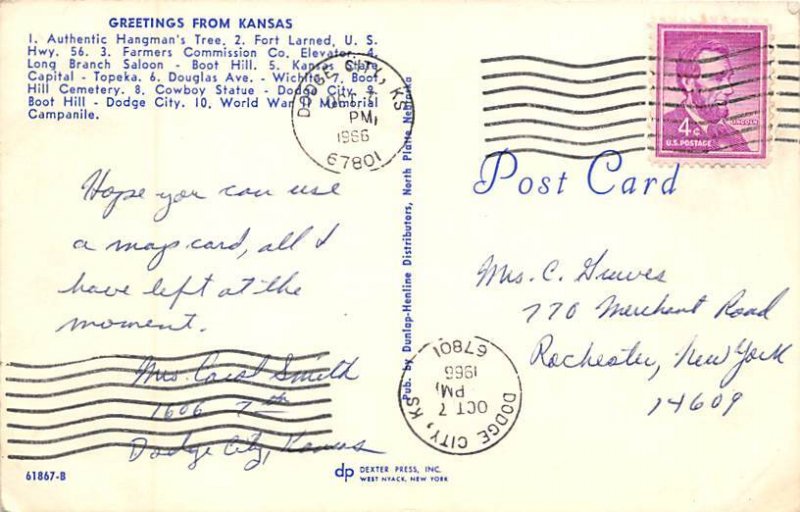 GREETINGS FROM KANSAS
1. Authentic Hangman's Tree. 2. Fort Larned, U. S.
Hwy. 56. 3. Farmers Commission Co. Elevator. 4.
Long Branch Saloon - Boot Hill. 5. Kansas State
Capital - Topeka. 6. Douglas Ave. - Wichita. 7. Boot
Hill Cemetery. 8. Cowboy Statue - Dodge City. 9.
Boot Hill - Dodge City. 10. World War Memorial
Campanile.
DODGE CITY, KS
OCT 7
PM
1966
67801
Hope you can use
a map card, all I
have left at the
moment.
Mrs. Carol Smith
1606 7th
Dodge City, Kansas
61867-B
dp DEXTER PRESS, INC.
WEST NYACK, NEW YORK
Pub. by Dunlap-Henline Distributors, North Platte, Nebraska
4¢
LINCOLN
U.S. POSTAGE
Post Card
Mrs. C.
770 Merchant Road
Rochester, New York
14609
DODGE CITY, KS
OCT 7
PM
1966
67801